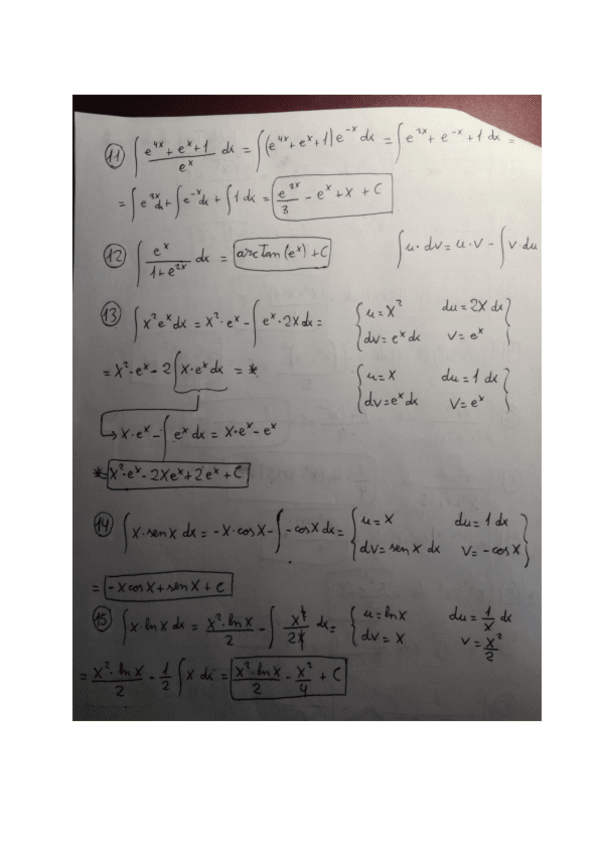 11) ∫ (e^{4x} + e^x + 1)/e^x dx = ∫(e^{4x} + e^x + 1)e^{-x} dx = ∫ e^{3x} + e^{-x} + 1 dx =
= ∫ e^{3x} dx + ∫ e^{-x} dx + ∫ 1 dx = e^{3x}/3 - e^x + x + C
12) ∫ e^x/(1+e^{2x}) dx = arctan(e^x) + C ∫u·dv = u·v - ∫v·du
13) ∫ x²e^x dx = x²·e^x - ∫ e^x·2x dx = { u = x² du = 2x dx
dv = e^x dx v = e^x }
= x²·e^x - 2∫ x·e^x dx = * { u = x du = 1 dx
dv = e^x dx v = e^x }
→ x·e^x - ∫ e^x dx = x·e^x - e^x
*= x²·e^x - 2xe^x + 2e^x + C
14) ∫ x·sen x dx = -x·cos x - ∫ -cos x dx = { u = x du = 1 dx
dv = sen x dx v = -cos x }
= -x cos x + sen x + C
15) ∫ x·ln x dx = x²·ln x/2 - ∫ x²/2x dx = { u = ln x du = 1/x dx
dv = x v = x²/2
= x²·ln x/2 - 1/2 ∫ x dx = x²·ln x/2 - x²/4 + C